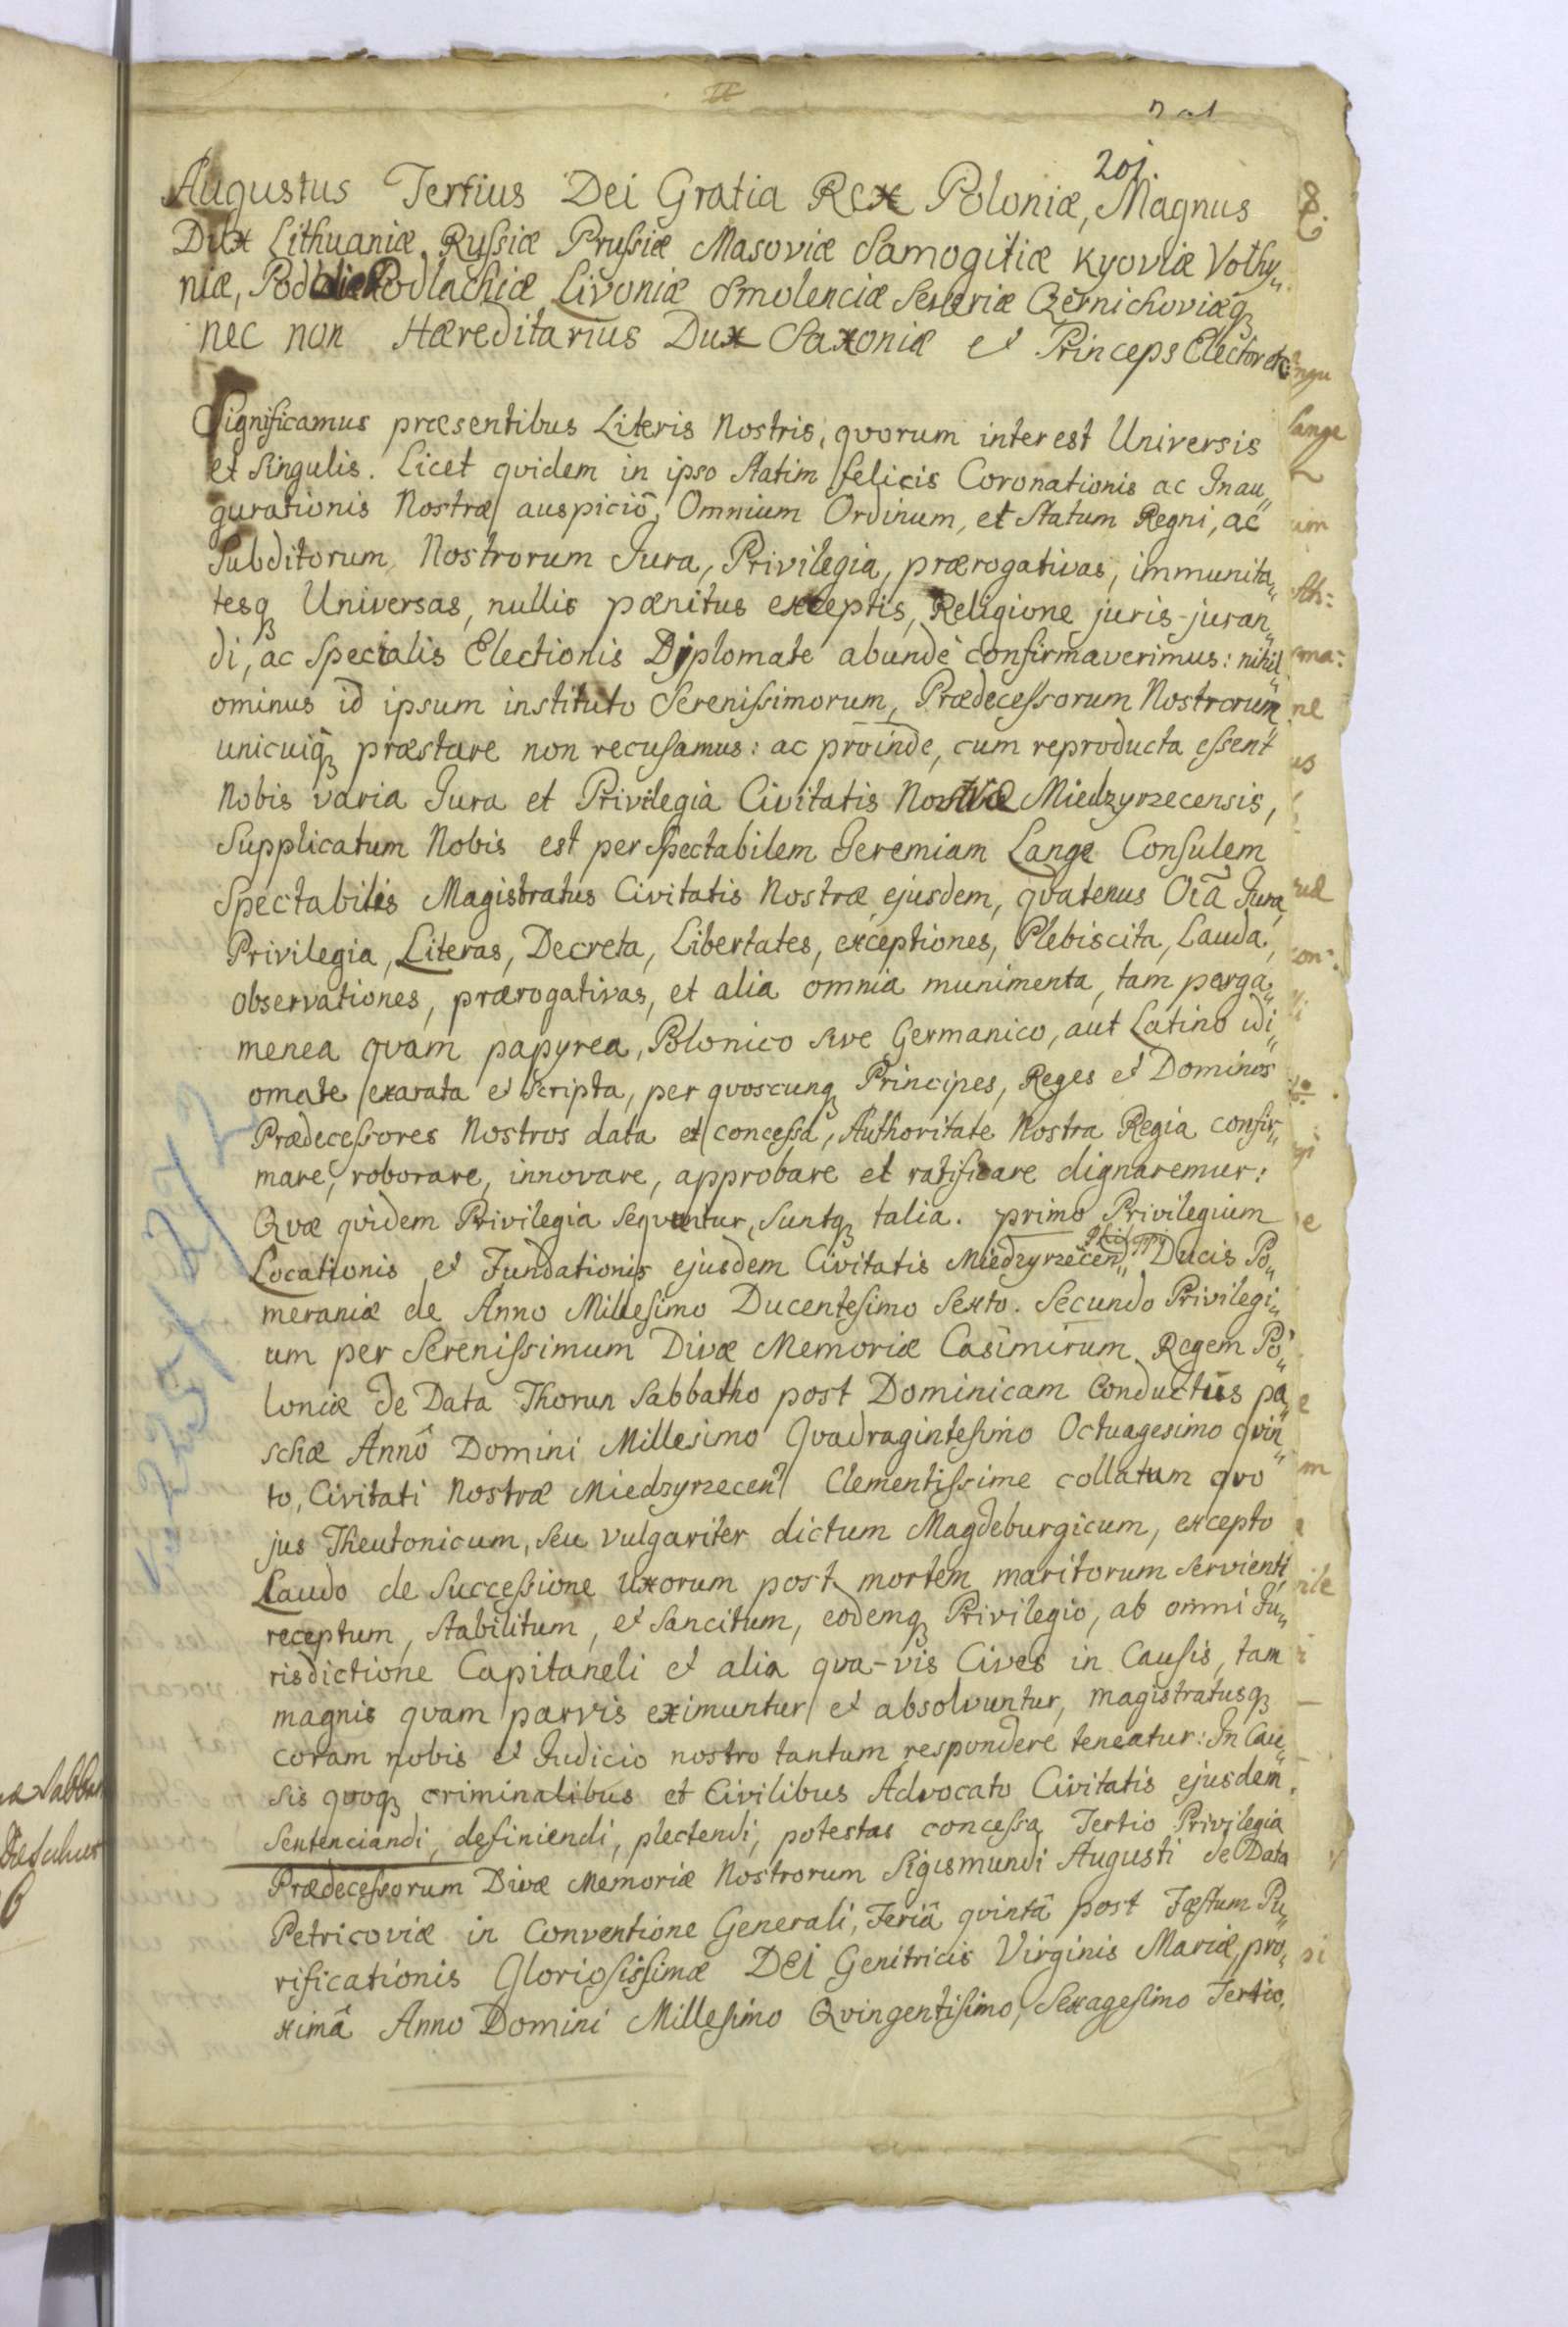 201.
Augustus Tertius Dei Gratia Rex Poloniæ, Magnus
Dux Lithuaniæ Russiæ Prussiæ Masoviæ Samogitiæ Kyoviæ Volhy„
niæ, Podoliæ Podlachiæ Livoniæ Smolenciæ Severiæ Czernichoviæq₃
nec non Hæreditarius Dux Saxoniæ et Princeps Elector etc:
Significamus præsentibus Literis Nostris, qvorum interest Universis
et Singulis. Licet qvidem in ipso statim felicis Coronationis ac Inau„
gurationis Nostræ auspiciô, Omnium Ordinum, et Statum Regni, ac
Subditorum Nostrorum Jura, Privilegia, prærogativas, immunita„
tesq₃ Universas, nullis pænitus exceptis, Religione juris-juran„
di, ac Specialis Electionis Diplomate abunde confirmaverimus: nihil„
ominus id ipsum instituto Serenissimorum, Prædecessorum Nostrorum
unicuiq₃ præstare non recusamus: ac proinde, cum reproducta essent
Nobis varia Jura et Privilegia Civitatis Nostræ Miedzyrzecensis,
Supplicatum Nobis est per Spectabilem Jeremiam Lange Consulem
Spectabilis Magistratus Civitatis Nostræ ejusdem, qvatenus Oĩa Jura,
Privilegia, Literas, Decreta, Libertates, exceptiones, Plebiscita, Lauda,
observationes, prærogativas, et alia omnia munimenta, tam perga„
menea qvam papyrea, Polonico sive Germanico, aut Latino idi„
omate exarata et scripta, per qvoscunq₃ Principes, Reges et Dominos
Prædecessores Nostros data et concessa, Authoritate Nostra Regia confir„
mare, roborare, innovare, approbare et ratificare dignaremur:
Qvæ qvidem Privilegia seqvuntur, suntq₃ talia. primo Privilegium
Locationis et Fundationis ejusdem Civitatis Miedzyrzecen„ Ducis Po„
meraniæ de Anno Millesimo Ducentesimo Sexto. Secundo Privilegi„
um per Serenissimum Divæ Memoriæ Casimirum Regem Po„
loniæ de Data Thorun Sabbatho post Dominicam Conductus pa„
schæ Annô Domini Millesimo Qvadragintesimo Octuagesimo qvin„
to, Civitati Nostræ Miedzyrzecen Clementissime collatum qvo
jus Theutonicum, seu vulgariter dictum Magdeburgicum, excepto
Laudo de successione uxorum post mortem maritorum servienti
receptum, stabilitum, et sancitum, eodemq₃ Privilegio, ab omni Ju„
risdictione Capitaneli et alia qva-vis Cives in Causis, tam
magnis qvam parvis eximuntur et absolvuntur, magistratusq₃
coram nobis et Judicio nostro tantum respondere teneatur: In Cau„
sis qvoq₃ criminalibus et Civilibus Advocato Civitatis ejusdem
Sentenciandi, definiendi, plectendi, potestas concessa Tertio Privilegia
Prædecessorum Divæ Memoriæ Nostrorum Sigismundi Augusti de Data
Petricoviæ in Conventione Generali, Feriâ qvintâ post Fæstum Pu„
rificationis Gloriosissimæ DEI Genitricis Virginis Mariæ, pro„
ximâ Anno Domini Millesimo Qvingentisimo, Sexagesimo Tertio.